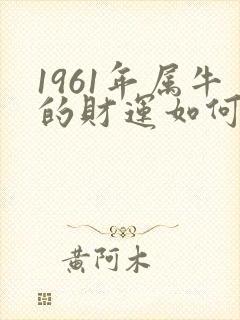 1961年属牛
的财运如何
黄阿木